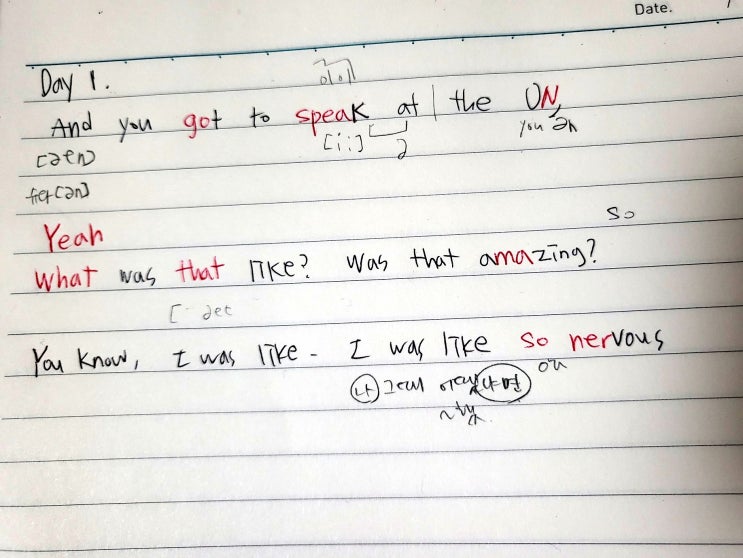 Date.
Day 1.
이이
And you got to speak at | the UN,
[æn] [i:] ə you ən
[ən]
Yeah
so
What was that like? Was that amazing?
[ æt
You know, I was like - I was like so nervous
ou
나 그때